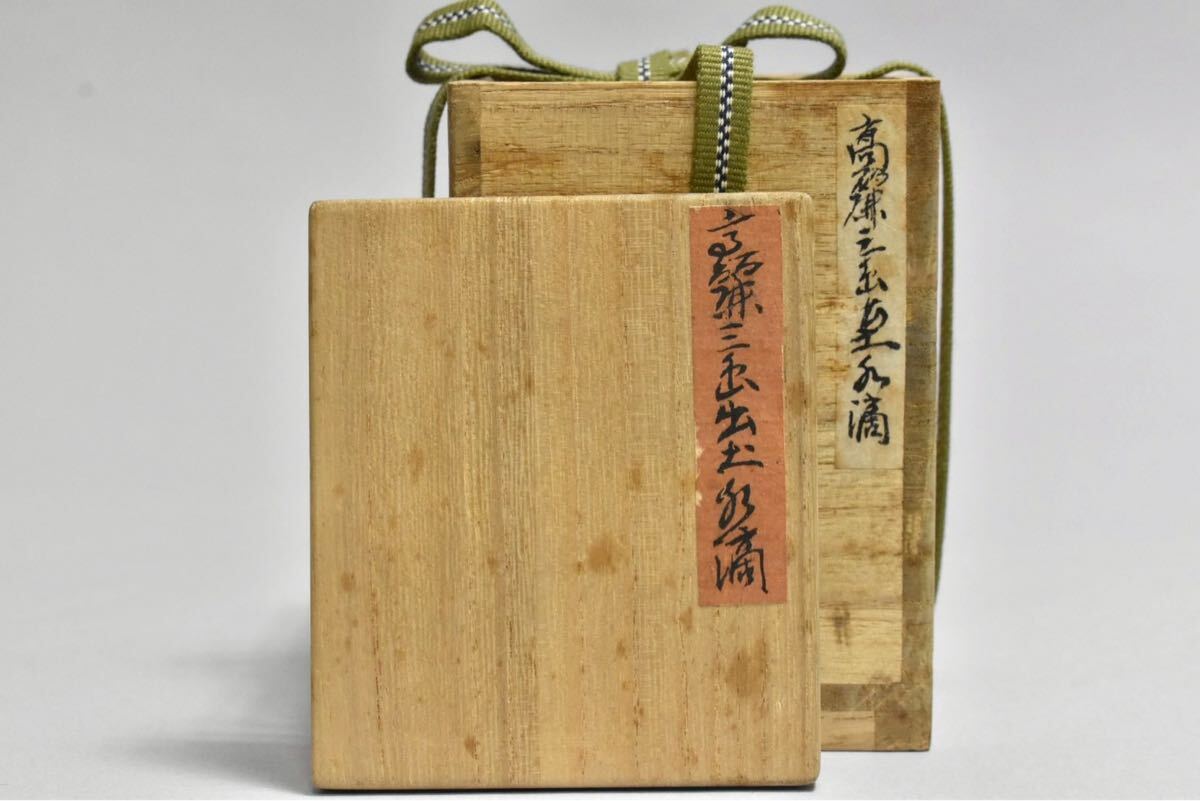 高麗三島出土水滴
高麗三島出土水滴